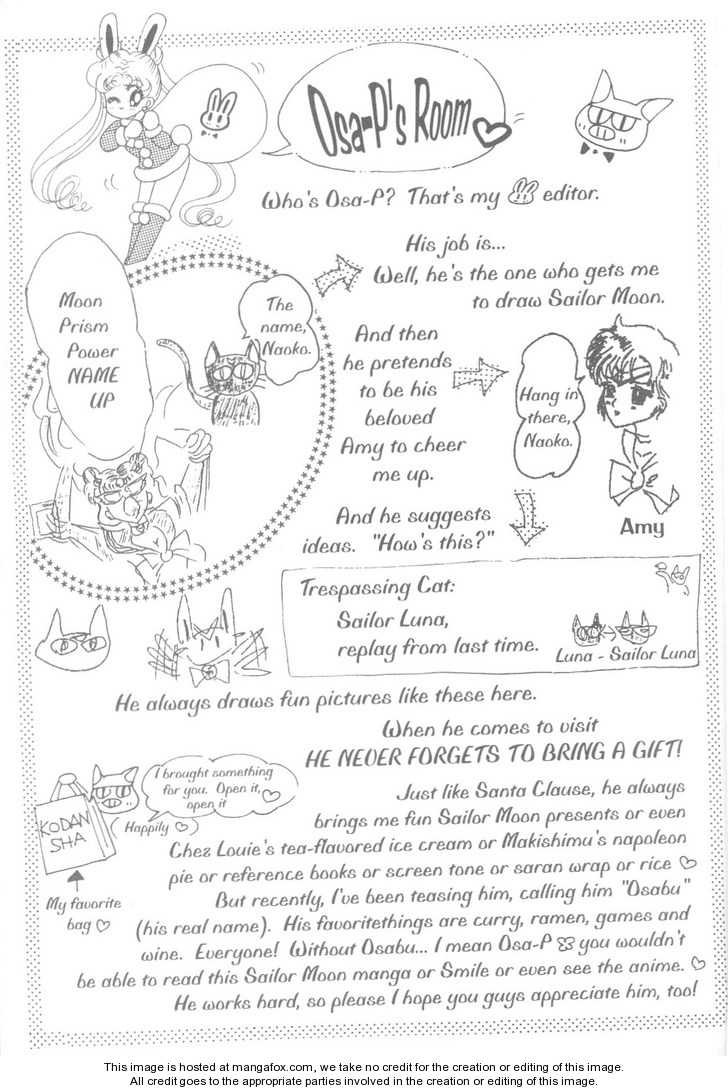 Osa-P's Room
Who's Osa-P? That's my editor.
His job is...
Well, he's the one who gets me
to draw Sailor Moon.
Moon
Prism
Power
NAME
UP
The
name,
Naoko.
And then
he pretends
to be his
beloved
Amy to cheer
me up.
Hang in
there,
Naoko.
Amy
And he suggests
ideas. "How's this?"
Trespassing Cat:
Sailor Luna,
replay from last time.
Luna - Sailor Luna
He always draws fun pictures like these here.
When he comes to visit
HE NEVER FORGETS TO BRING A GIFT!
I brought something
for you. Open it,
open it
(Happily ♡)
KODAN
SHA
My favorite
bag ♡
Just like Santa Clause, he always
brings me fun Sailor Moon presents or even
Chez Louie's tea-flavored ice cream or Makishimu's napoleon
pie or reference books or screen tone or saran wrap or rice ♡
But recently, I've been teasing him, calling him "Osabu"
(his real name). His favoritethings are curry, ramen, games and
wine. Everyone! Without Osabu... I mean Osa-P you wouldn't
be able to read this Sailor Moon manga or Smile or even see the anime. ♡
He works hard, so please I hope you guys appreciate him, too!
This image is hosted at mangafox.com, we take no credit for the creation or editing of this image.
All credit goes to the appropriate parties involved in the creation or editing of this image.